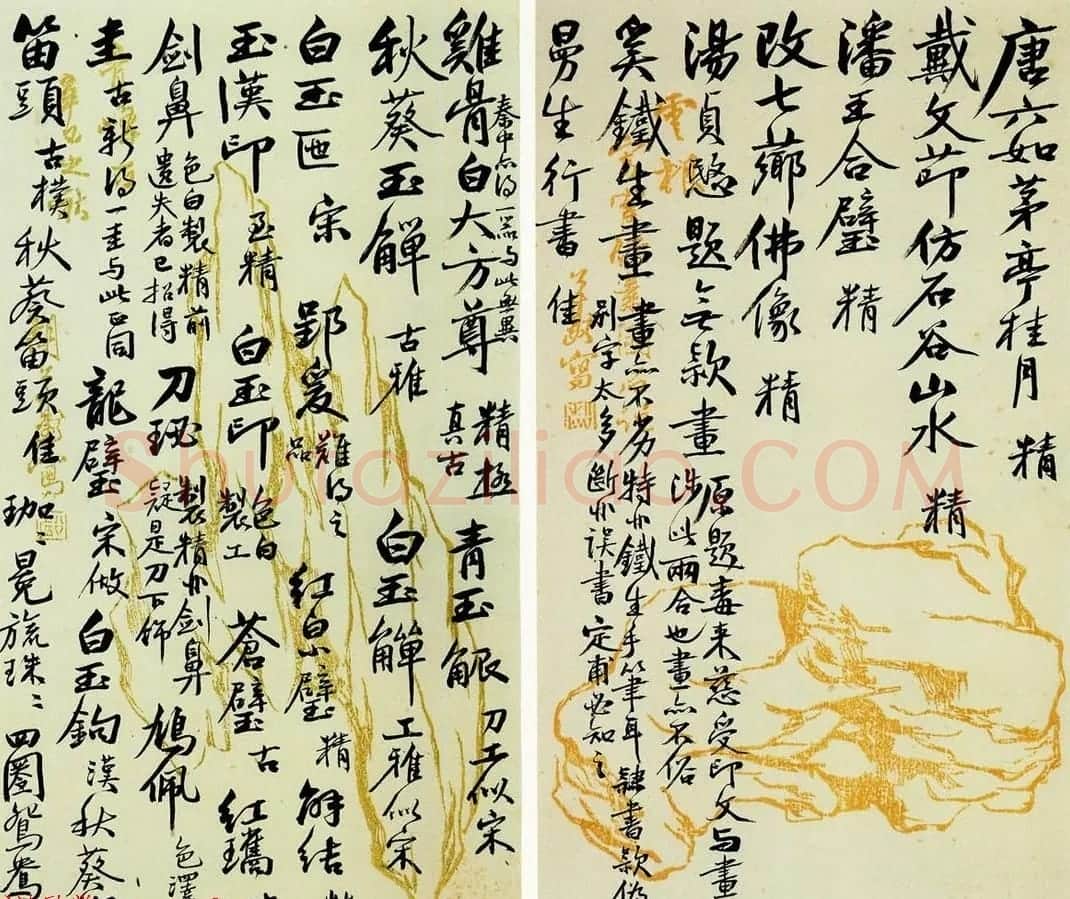 唐六如茅亭桂月 精
戴文節仿石谷山水 精
潘王合璧 精
改七薌佛像 精
湯貞愍題無款畫 原題毒來慈受印文與畫
涉此兩合也畫亦不俗
奚鐵生畫 畫亦不劣特非鐵生手筆耳隸書款偽
別字太多斷非誤書定甫必知之
曼生行書 佳
雞骨白大方尊 精極 青玉觚 刀工似宋
秦中亦得一器與此無異
真古
秋葵玉觶 古雅 白玉觶 工雅似宋
白玉匜 宋 郢爰 難得之 紅白小璧 精 解結
品
玉漢印 玉精 白玉印 色白 蒼璧 古 紅瓗
製工
劍鼻 色白製精前 刀珌 製精非劍鼻 鳩佩 色澤
遺失者已招得 疑是刀下飾
圭古新得一圭與此正同 龍璧宋做 白玉鉤 漢秋葵
笛頭 古樸 秋葵笛頭 佳 珈 冕旒珠 四圈鴛鴦
Shufaziliao.COM